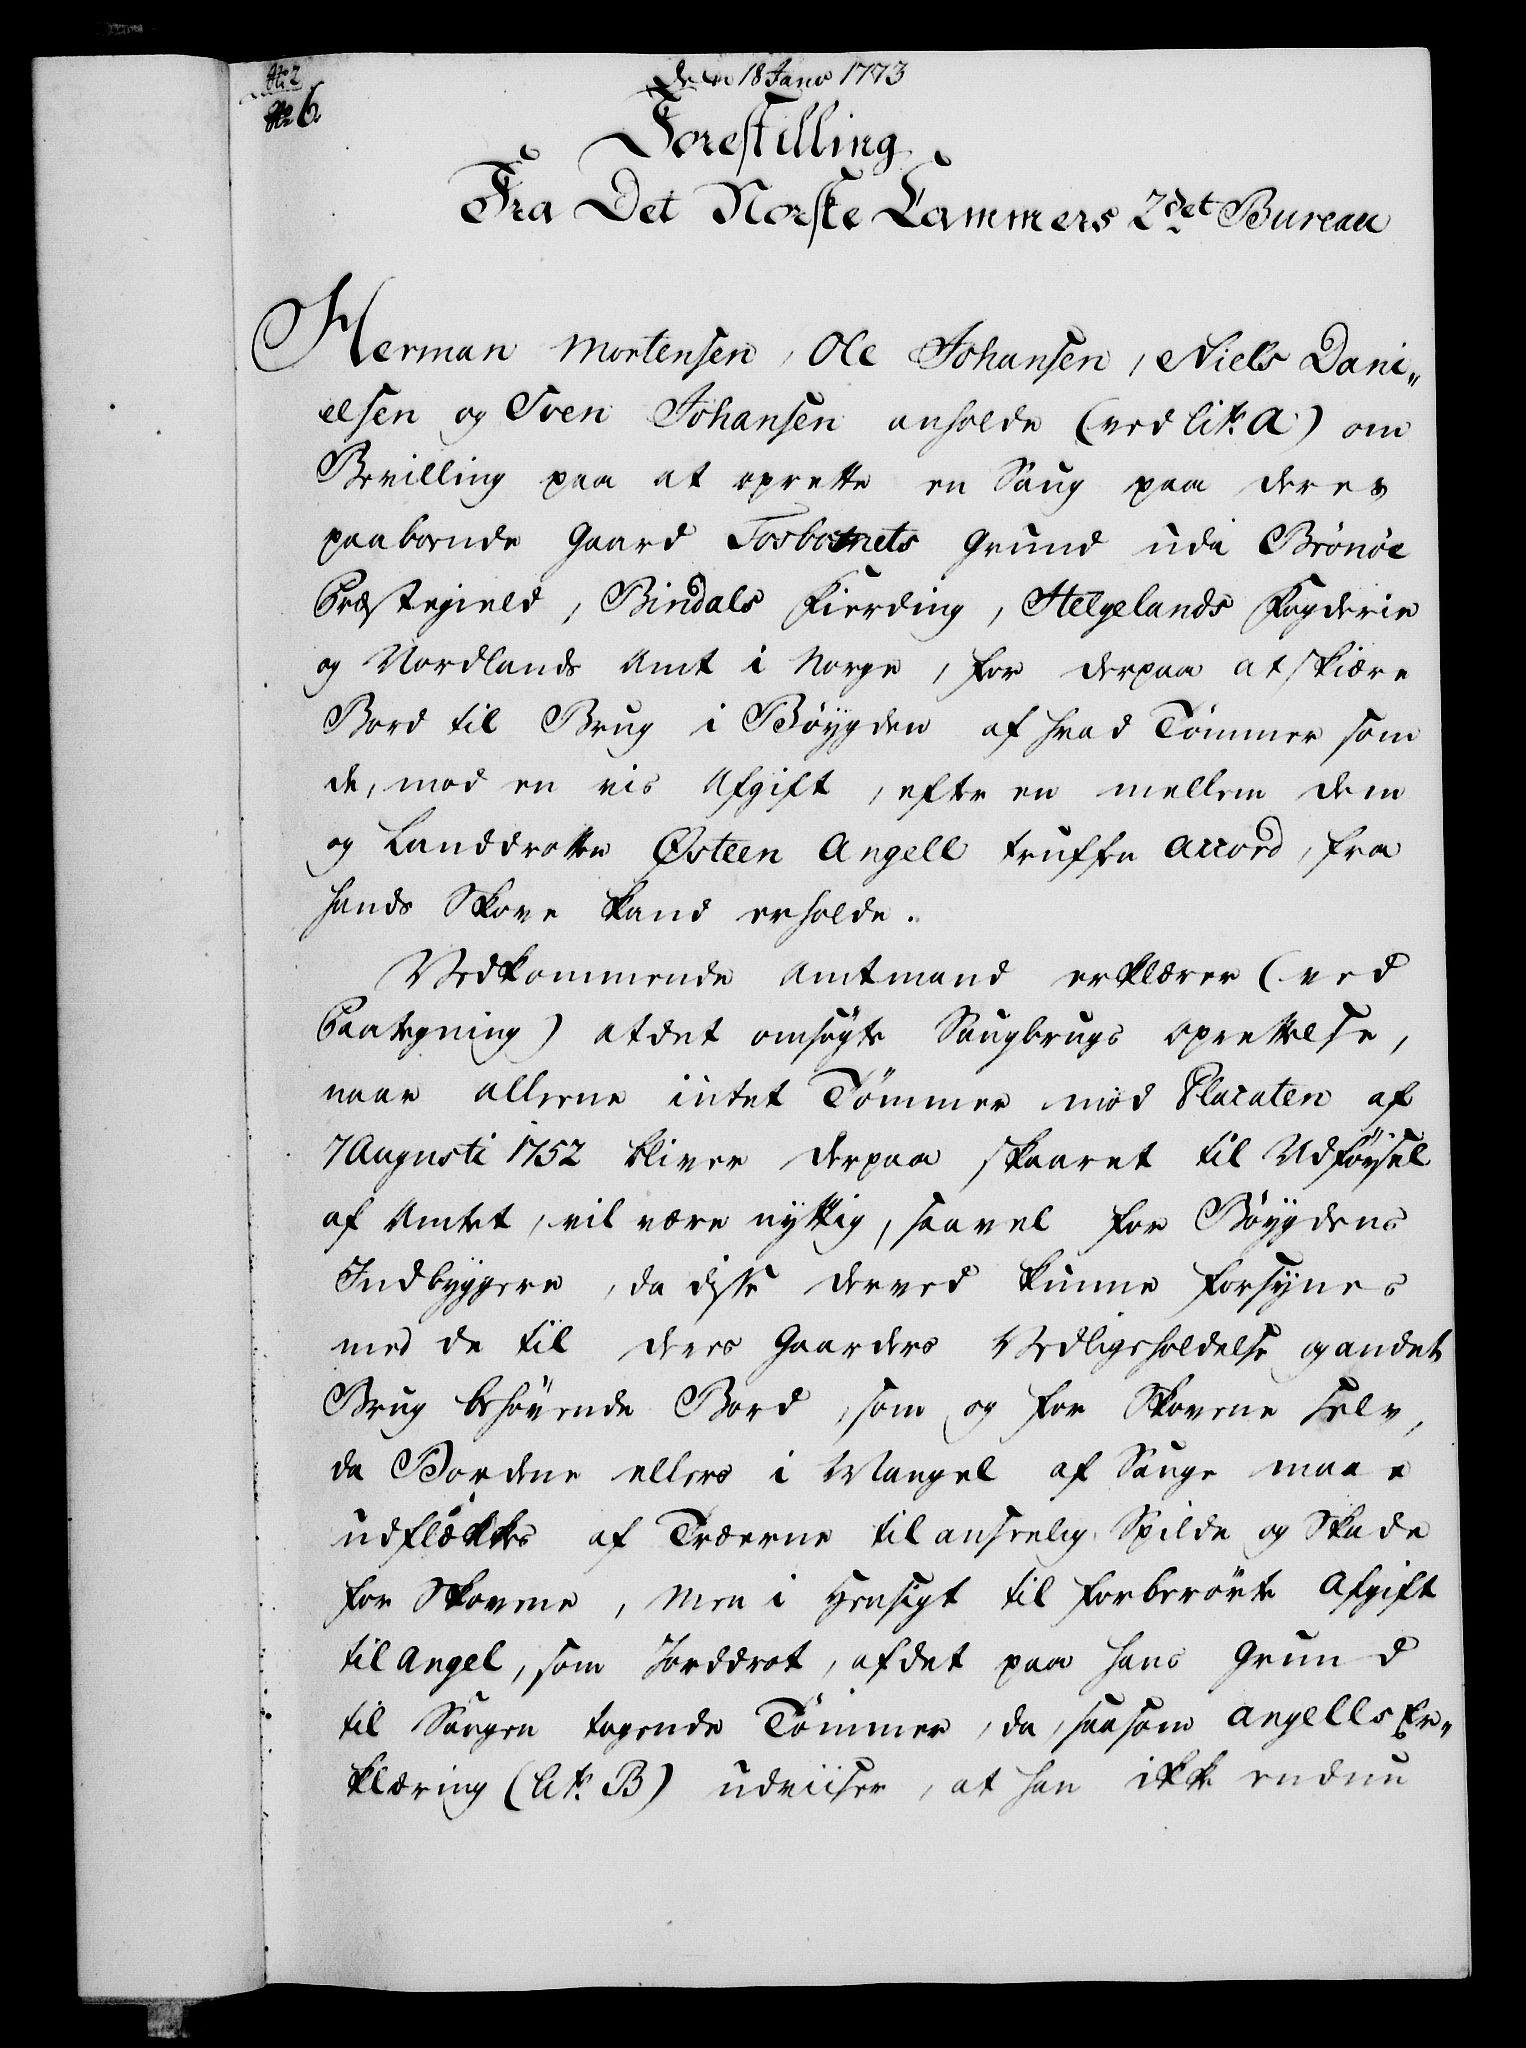 No 2
No 6.
den 18 Janv 1773
Forestilling
Fra Det Norske Cammers 2det Bureau
Herman Mortensen, Ole Johansen, Niels Dani„
elsen og Sven Johansen anholde (ved lit. A) om
Bevilling paa at oprette en Saug paa deres
paaboende Gaard Tosbotnets Grund udi Brönöe
Præstegield, Bindals Fierding, Helgelands Fogderie
og Nordlands Amt i Norge, for derpaa at skiære
Bord til Brug i Böygden af hvad Tömmer som
de, mod en vis Afgift, efter en mellem dem
og Landdrotten Østeen Angell truffen Accord, fra
hands Skove kand erholde.
Vedkommende Amtmand erklærer (ved
Paategning) at det omsögte Saugbrugs Oprettelse,
naar alleene intet Tömmer mod Placaten af
7 Augusti 1752 bliver derpaa skaaret til Udförsel
af Amtet, vil være nyttig, saavel for Böygdens
Indbyggere, da disse derved kunne forsynes
med de til deres Gaarders Vedligeholdelse og andet
Brug behövende Bord, som og for Skovene selv,
da Bordene ellers i Mangel af Sauge maae
udflækkes af Træerne til anseelig Spilde og Skade
for Skovene, Men i Hensigt til forberörte Afgift
til Angel, som Jorddrot, af det paa hans Grund
til Saugen tagende Tömmer, da, saasom Angells Er„
klæring (lit. B) udviiser, at han ikke endnu